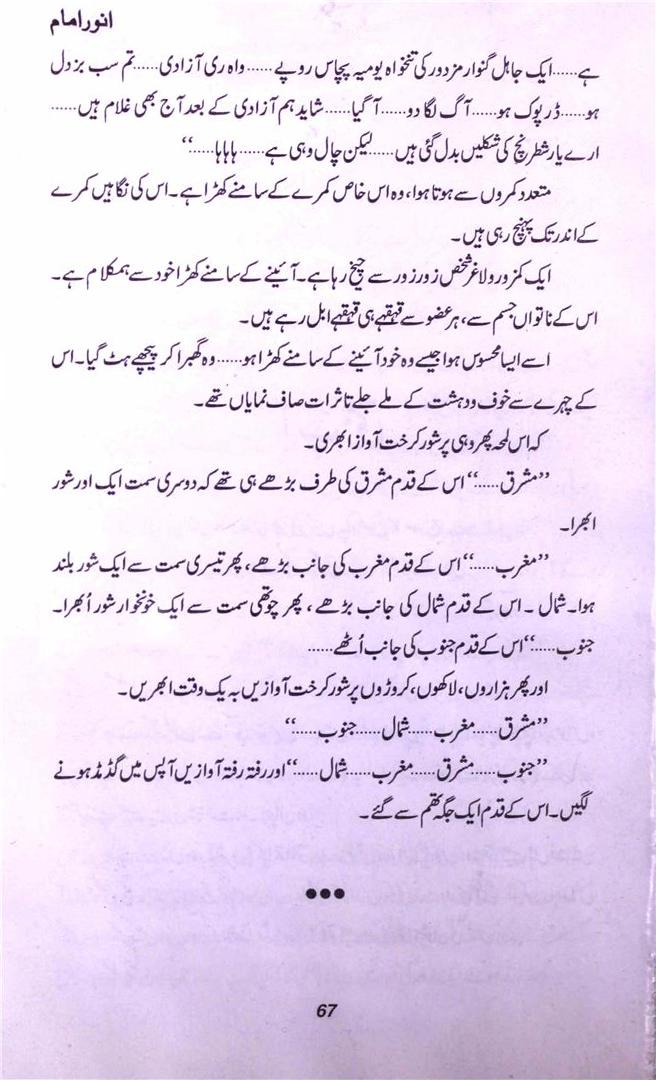 انور امام
ہے......ایک جاہل گنوار مزدور کی تنخواہ یومیہ پچاس روپے......واہ ری آزادی......تم سب بزدل
ہو......ڈرپوک ہو......آگ لگا دو......آ گیا......شاید ہم آزادی کے بعد آج بھی غلام ہیں......
ارے یار شطرنج کی شکلیں بدل گئی ہیں......لیکن چال وہی ہے......ہاہاہا......‘‘
متعدد کمروں سے ہوتا ہوا، وہ اس خاص کمرے کے سامنے کھڑا ہے۔ اس کی نگاہیں کمرے
کے اندر تک پہنچ رہی ہیں۔
ایک کمزور ولاغر شخص زور زور سے چیخ رہا ہے۔ آئینے کے سامنے کھڑا خود سے ہمکلام ہے۔
اس کے ناتواں جسم سے، ہر عضو سے قہقہے ہی قہقہے ابل رہے ہیں۔
اسے ایسا محسوس ہوا جیسے وہ خود آئینے کے سامنے کھڑا ہو......وہ گھبرا کر پیچھے ہٹ گیا۔ اس
کے چہرے سے خوف و دہشت کے ملے جلے تاثرات صاف نمایاں تھے۔
کہ اس لمحہ پھر وہی پرشور کرخت آواز ابھری۔
’’مشرق......‘‘ اس کے قدم مشرق کی طرف بڑھے ہی تھے کہ دوسری سمت ایک اور شور
ابھرا۔
’’مغرب......‘‘ اس کے قدم مغرب کی جانب بڑھے، پھر تیسری سمت سے ایک شور بلند
ہوا۔ شمال ۔ اس کے قدم شمال کی جانب بڑھے ، پھر چوتھی سمت سے ایک خونخوار شور اُبھرا۔
جنوب......‘‘ اس کے قدم جنوب کی جانب اُٹھے......
اور پھر ہزاروں، لاکھوں، کروڑوں پرشور کرخت آوازیں بہ یک وقت ابھریں۔
’’مشرق......مغرب......شمال......جنوب......‘‘
’’جنوب......مشرق......مغرب......شمال......‘‘ اور رفتہ رفتہ آوازیں آپس میں گڈمڈ ہونے
لگیں۔ اس کے قدم ایک جگہ تھم سے گئے۔
●●●
67